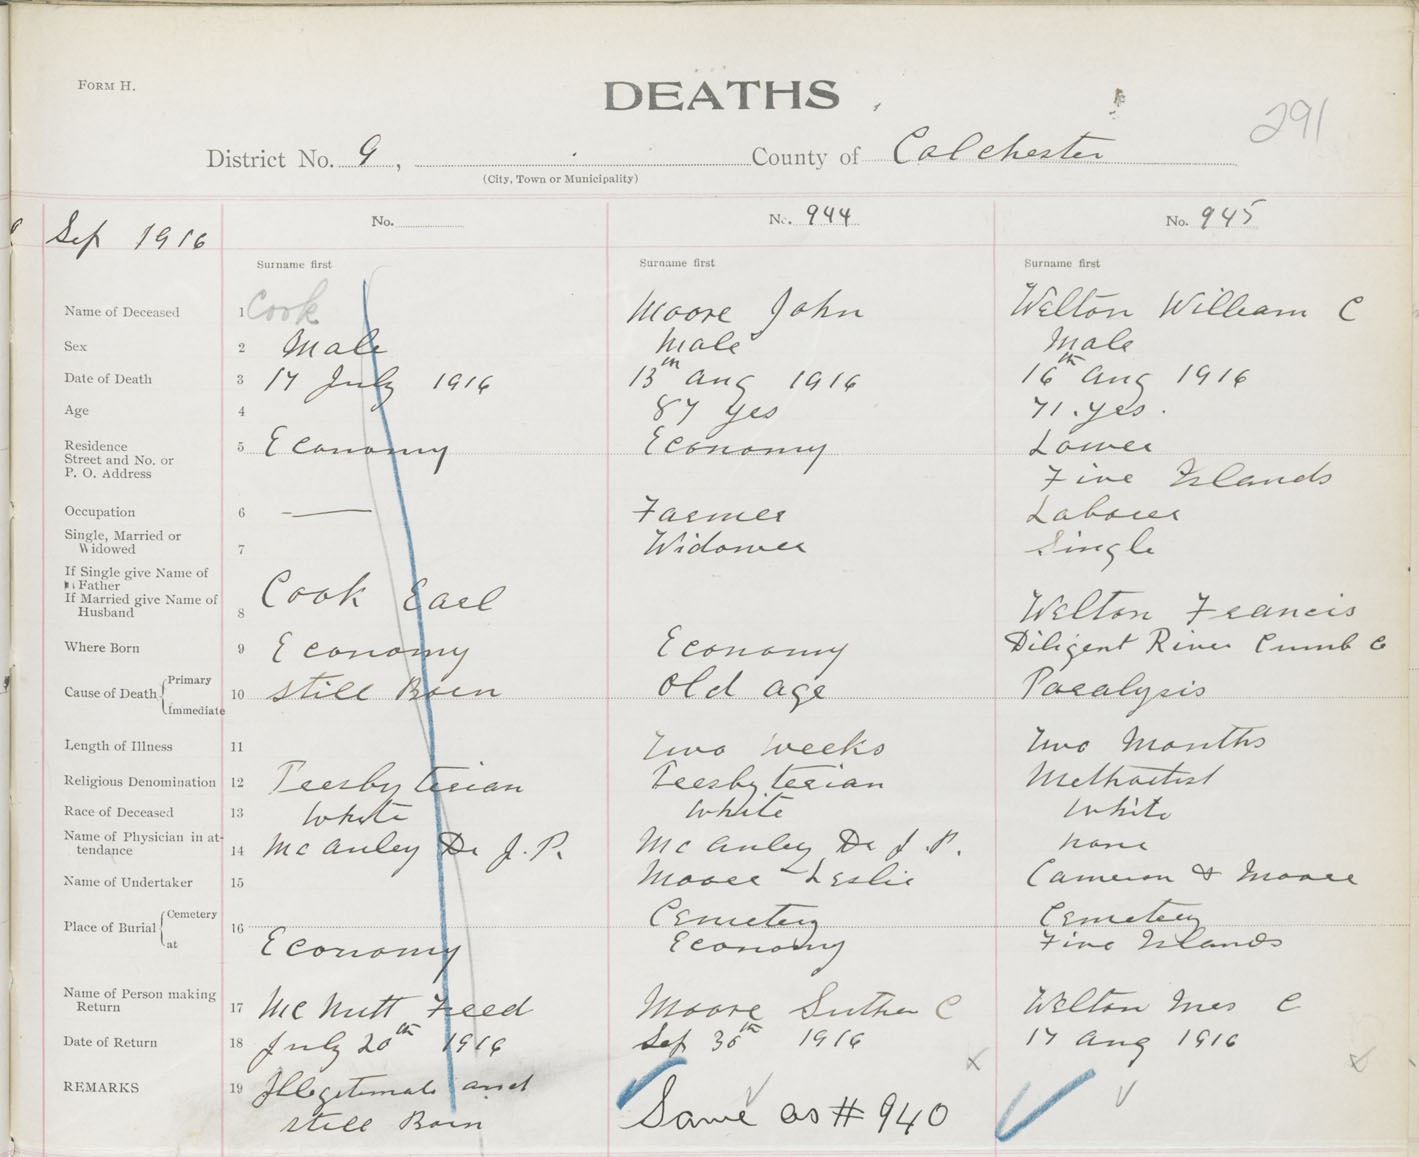 FORM H.
DEATHS
291
District No. 9, County of Colchester
(City, Town or Municipality)
Sep 1916
No.
No. 944
No. 945
Surname first
Surname first
Surname first
Name of Deceased 1 Cook Moore John Welton William C
Sex 2 Male Male Male
Date of Death 3 17 July 1916 13th Aug 1916 16th Aug 1916
Age 4 87 yrs 71. yrs.
Residence 5 Economy Economy Lower
Street and No. or
P. O. Address Five Islands
Occupation 6 — Farmer Laborer
Single, Married or
Widowed 7 Widower Single
If Single give Name of
Father
If Married give Name of
Husband 8 Cook Earl Welton Francis
Where Born 9 Economy Economy Diligent River Cumb Co
Cause of Death Primary
Immediate 10 still Born Old age Paralysis
Length of Illness 11 Two weeks Two Months
Religious Denomination 12 Presbyterian Presbyterian Methodist
Race of Deceased 13 White White White
Name of Physician in at-
tendance 14 McAuley Dr J. P. McAuley Dr J. P. none
Name of Undertaker 15 Moore Leslie Cameron & Moore
Place of Burial Cemetery 16 Cemetery Cemetery
at Economy Economy Five Islands
Name of Person making
Return 17 McNutt Fred Moore Luther C Welton Mrs C
Date of Return 18 July 20th 1916 Sep 30th 1916 17 Aug 1916
REMARKS 19 Illegitimate and
still Born Same as # 940